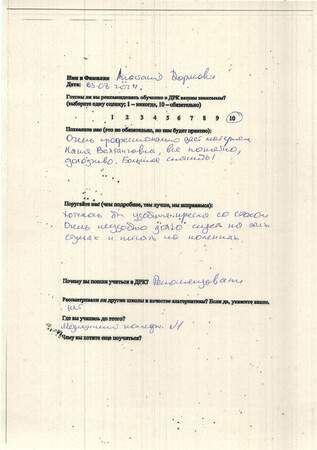 Имя и Фамилия
Дата: 03.2024г.
Готовы ли вы рекомендовать обучение в ДРК вашим знакомым?
(выберите одну оценку; 1 – никогда, 10 – обязательно)
1 2 3 4 5 6 7 8 9 10
Похвалите нас (это не обязательно, но нам будет приятно):
Очень профессионально даёт материал
Вахтанговна, все понятно,
доходчиво. Большое спасибо!
Поругайте нас (чем подробнее, тем лучше, мы исправимся):
Хотелось бы кресла со столом
Очень неудобно долго сидеть на
стульях и писать на коленях
Почему вы пошли учиться в ДРК? Рекомендовали
Рассматривали ли другие школы в качестве альтернативы? Если да, укажите какие.
нет
Где вы учились до этого?
Медицинский колледж №1
Чему вы хотите еще поучиться?